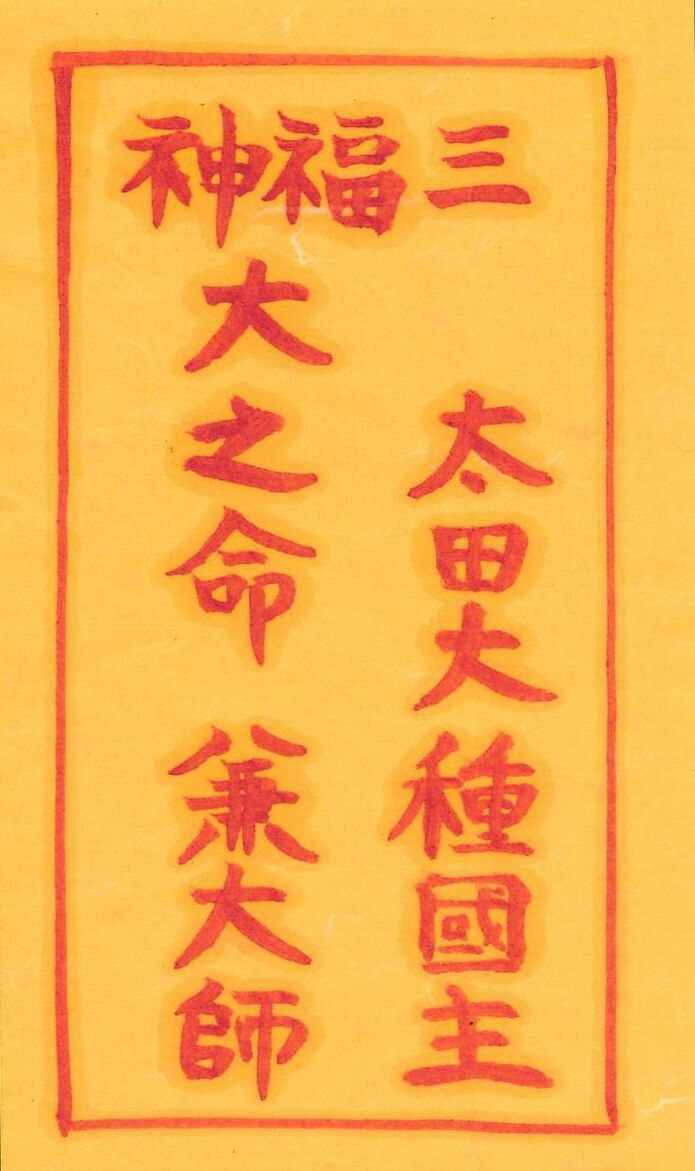 三福神
太田大種國主
大之命 兼大師